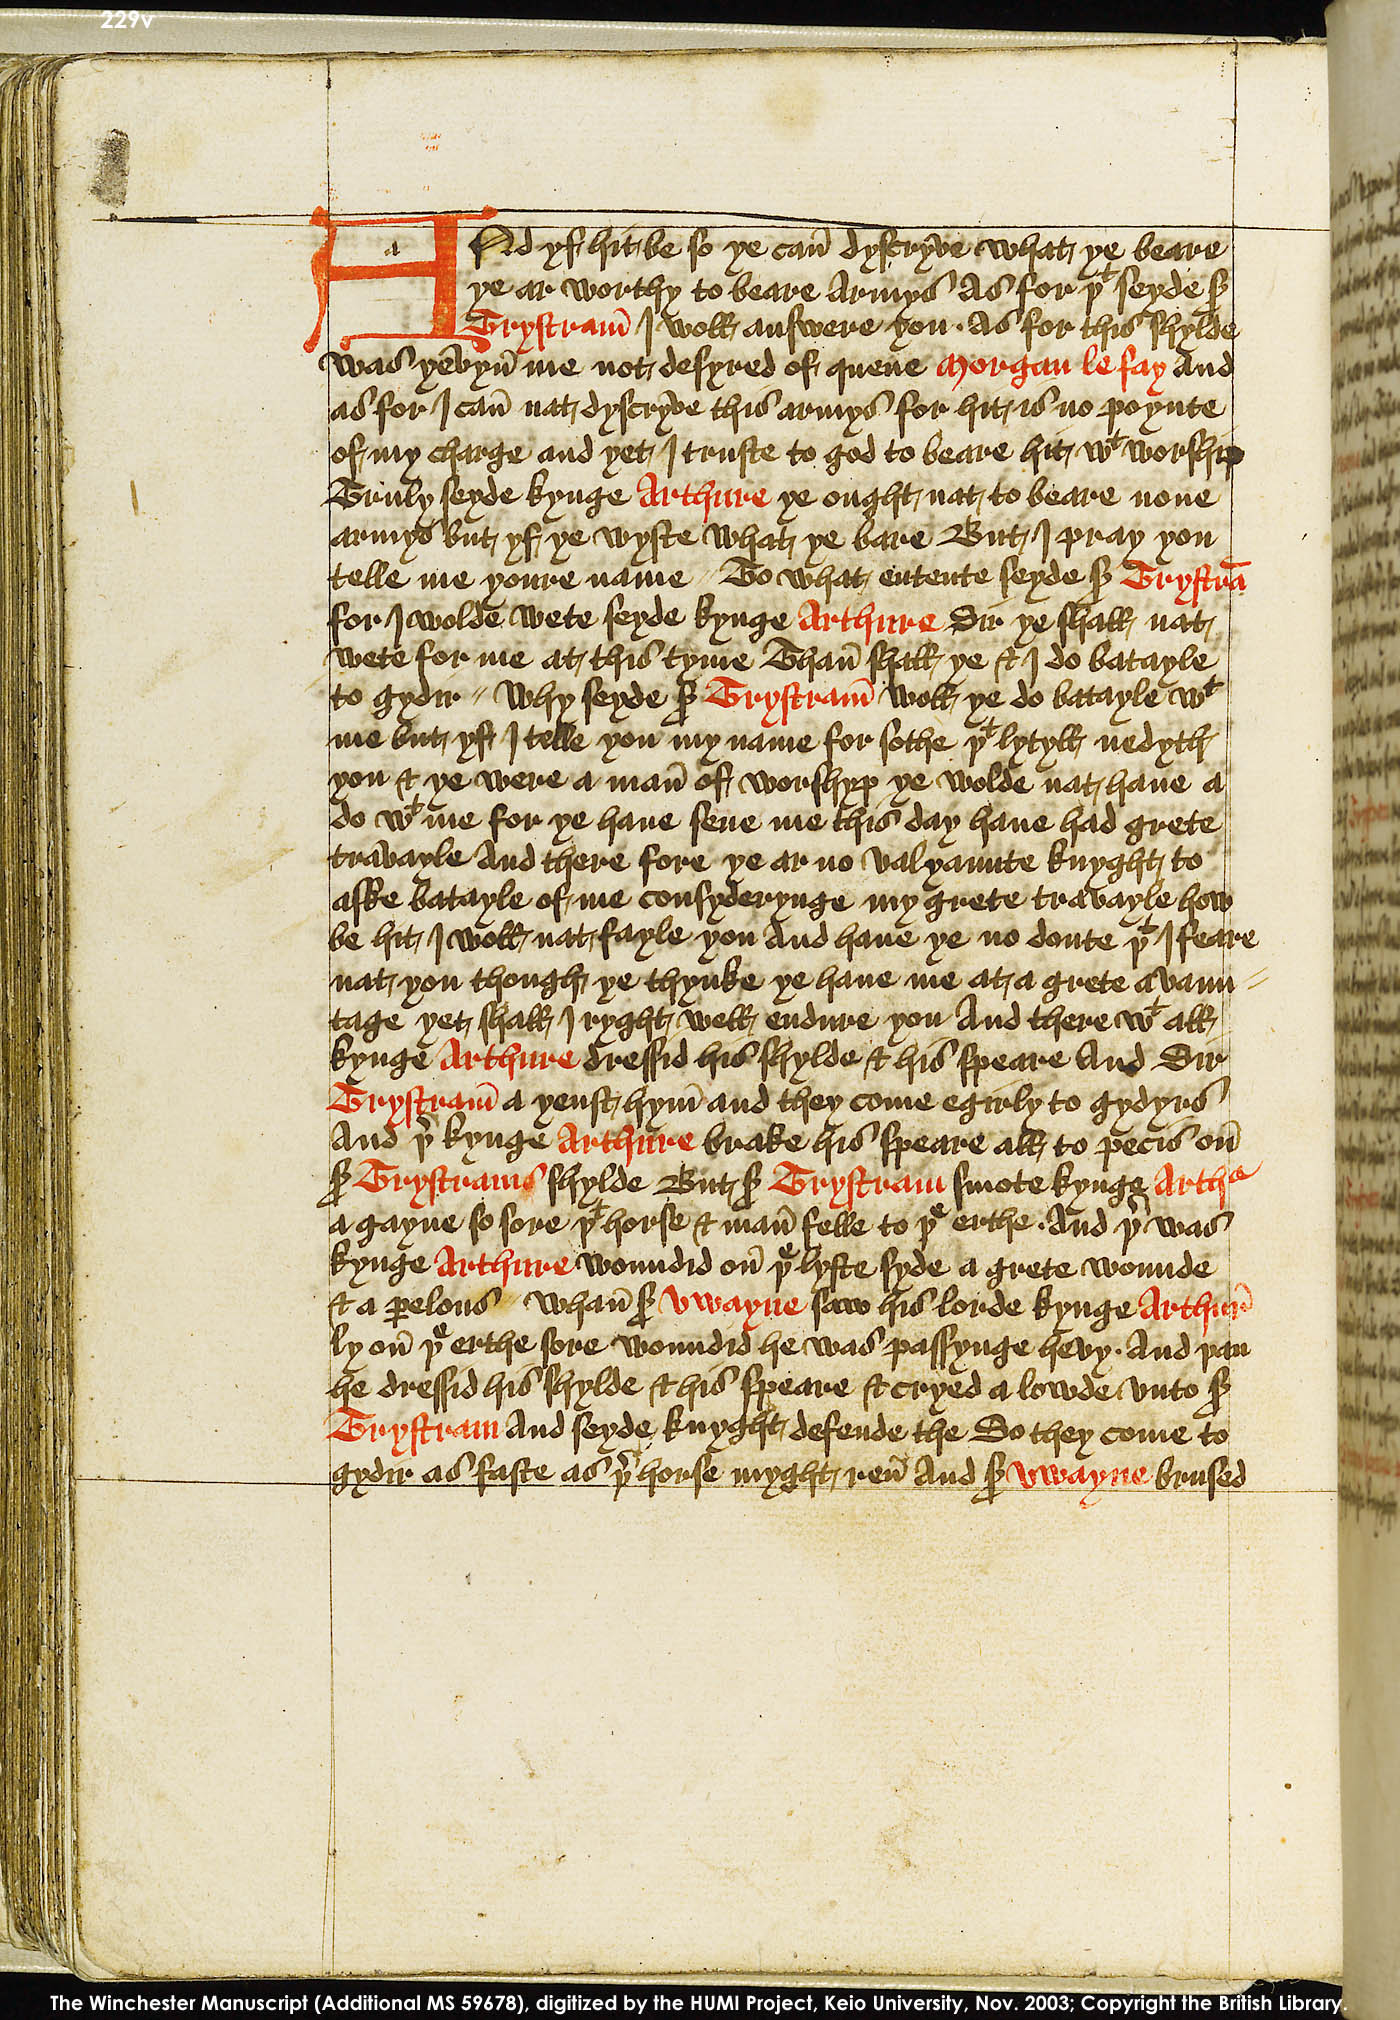 229v
a
And yf hit be so ye can̄ dyscryve what ye beare
ye ar worthy to beare Armys As for þᵗ seyde sʳ
Trystram̄ I woll answere you · As for this shylde
was yēvyn̄ me not desyred of quene Morgan le fay And
as for I can̄ nat dyscryve this armys for hit is no poynte
of my charge and yet I truste to god to beare hit wᵗ worship
Truly seyde kynge Arthure ye ought nat to beare none
armys but yf ye wyste what ye bare But I pray you
telle me youre name // To what entente seyde sʳ Trystrā
for I wolde wete seyde kynge Arthure Sir ye shall nat
wete for me at this tyme Than̄ shall ye & I do batayle
to gydir // Why seyde sʳ Trystram̄ woll ye do batayle wᵗ
me but yf I telle you my name for sothe þᵗ lytyll nedyth
you & ye were a man̄ of worshyp ye wolde nat have a
do wᵗ me for ye have sene me this day have had grete
travayle And there fore ye ar no valyaunte knyght to
aske batayle of me consyderynge my grete travayle how
be hit I woll nat fayle you And have ye no doute þᵗ I feare
nat you though ye thynke ye have me at a grete avaun//
tage yet shall I ryght well endure you And there wᵗ all
kynge Arthure dressid his shylde & his speare And Sir
Trystram̄ a yenst hym̄ and they come egirly to gydyrs
And þʳ kynge Arthure brake his speare all to pecis on̄
sʳ Trystrams shylde But sʳ Trystram smote kynge Arthᵉ
a gayne so sore þᵗ horse & man̄ felle to þᵉ erthe · And þʳ was
kynge Arthure woundid on̄ þᵉ lyfte syde a grete wounde
& a ꝑelous // Whan̄ sʳ Vwayne saw his lorde kynge Arthur̄
ly on̄ þᵉ erthe sore woundid he was passynge hevy · And þan
he dressid his shylde & his speare & cryed a lowde vnto sʳ
Trystram And seyde knyght defende the So they come to
gydir as faste as þʳ horse myght ren̄ And sʳ Vwayne brused
The Winchester Manuscript (Additional MS 59678), digitized by the HUMI Project, Keio University, Nov. 2003; Copyright the British Library.